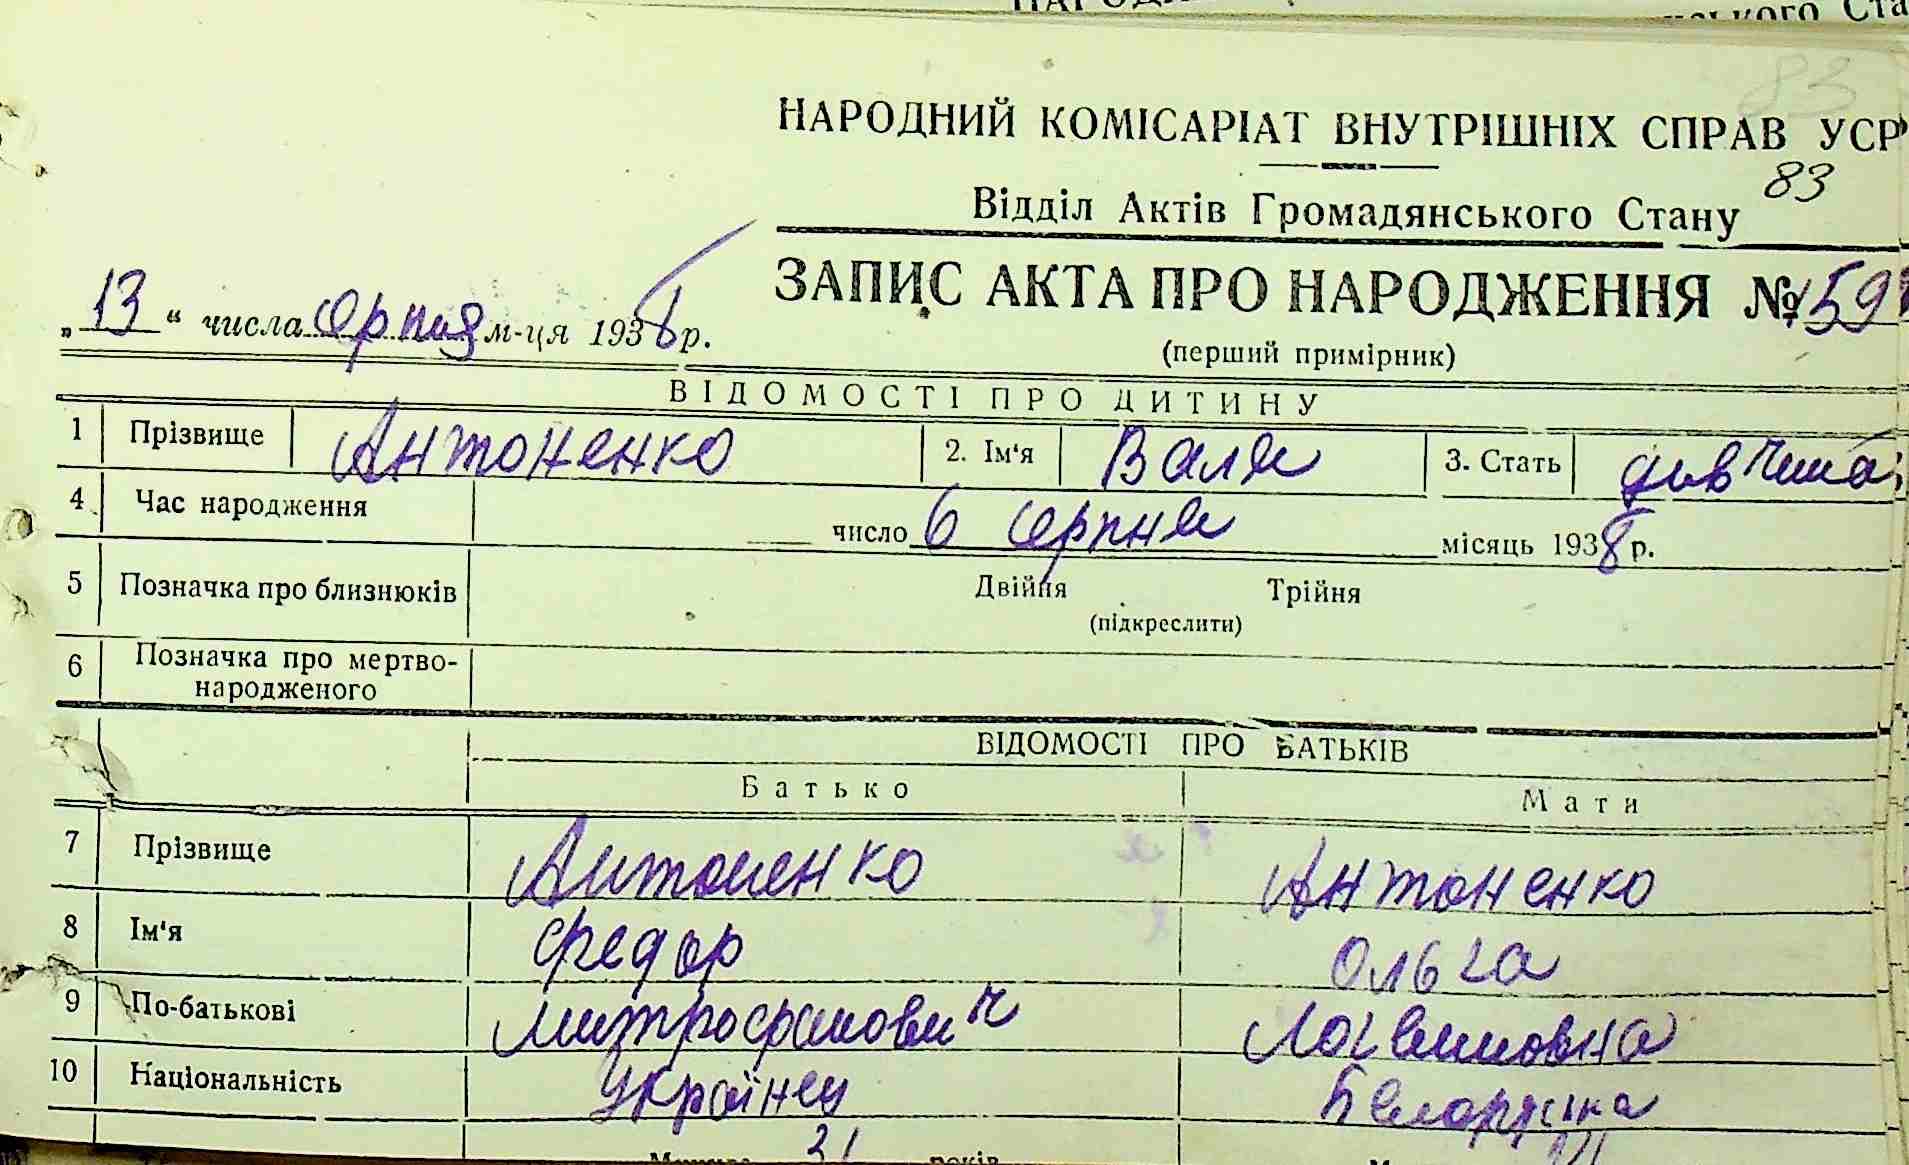 83
НАРОДНИЙ КОМІСАРІАТ ВНУТРІШНІХ СПРАВ УСР
83
Відділ Актів Громадянського Стану
ЗАПИС АКТА ПРО НАРОДЖЕННЯ № 159
„13“ числа серпня м-ця 1938 р.
(перший примірник)
ВІДОМОСТІ ПРО ДИТИНУ
1 Прізвище Антоненко 2. Ім'я Валя 3. Стать дівчина
4 Час народження число 6 серпня місяць 1938 р.
5 Позначка про близнюків Двійня Трійня
(підкреслити)
6 Позначка про мертво-
народженого
ВІДОМОСТІ ПРО БАТЬКІВ
Батько Мати
7 Прізвище Антоненко Антоненко
8 Ім'я Федор Ольга
9 По-батькові Митрофанович Логвиновна
10 Національність Українец Белоруска
31 років